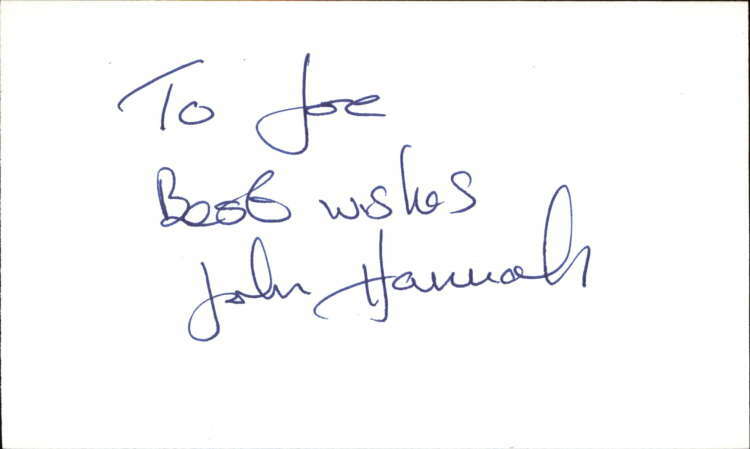 To Joe
Best wishes
John Hannah